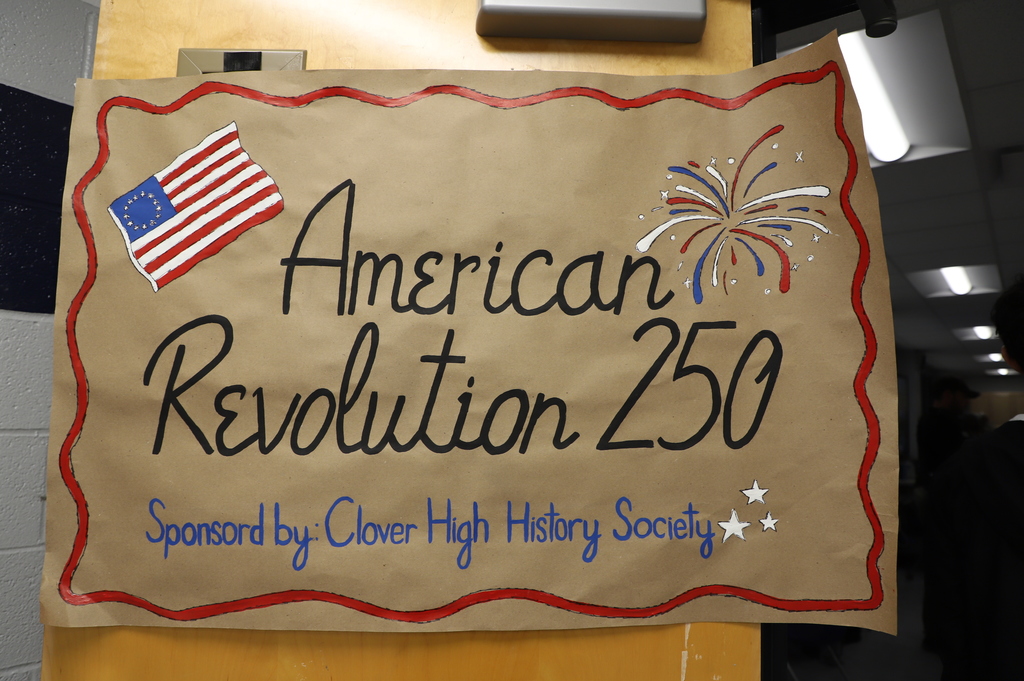 American
Revolution 250
Sponsord by: Clover High History Society